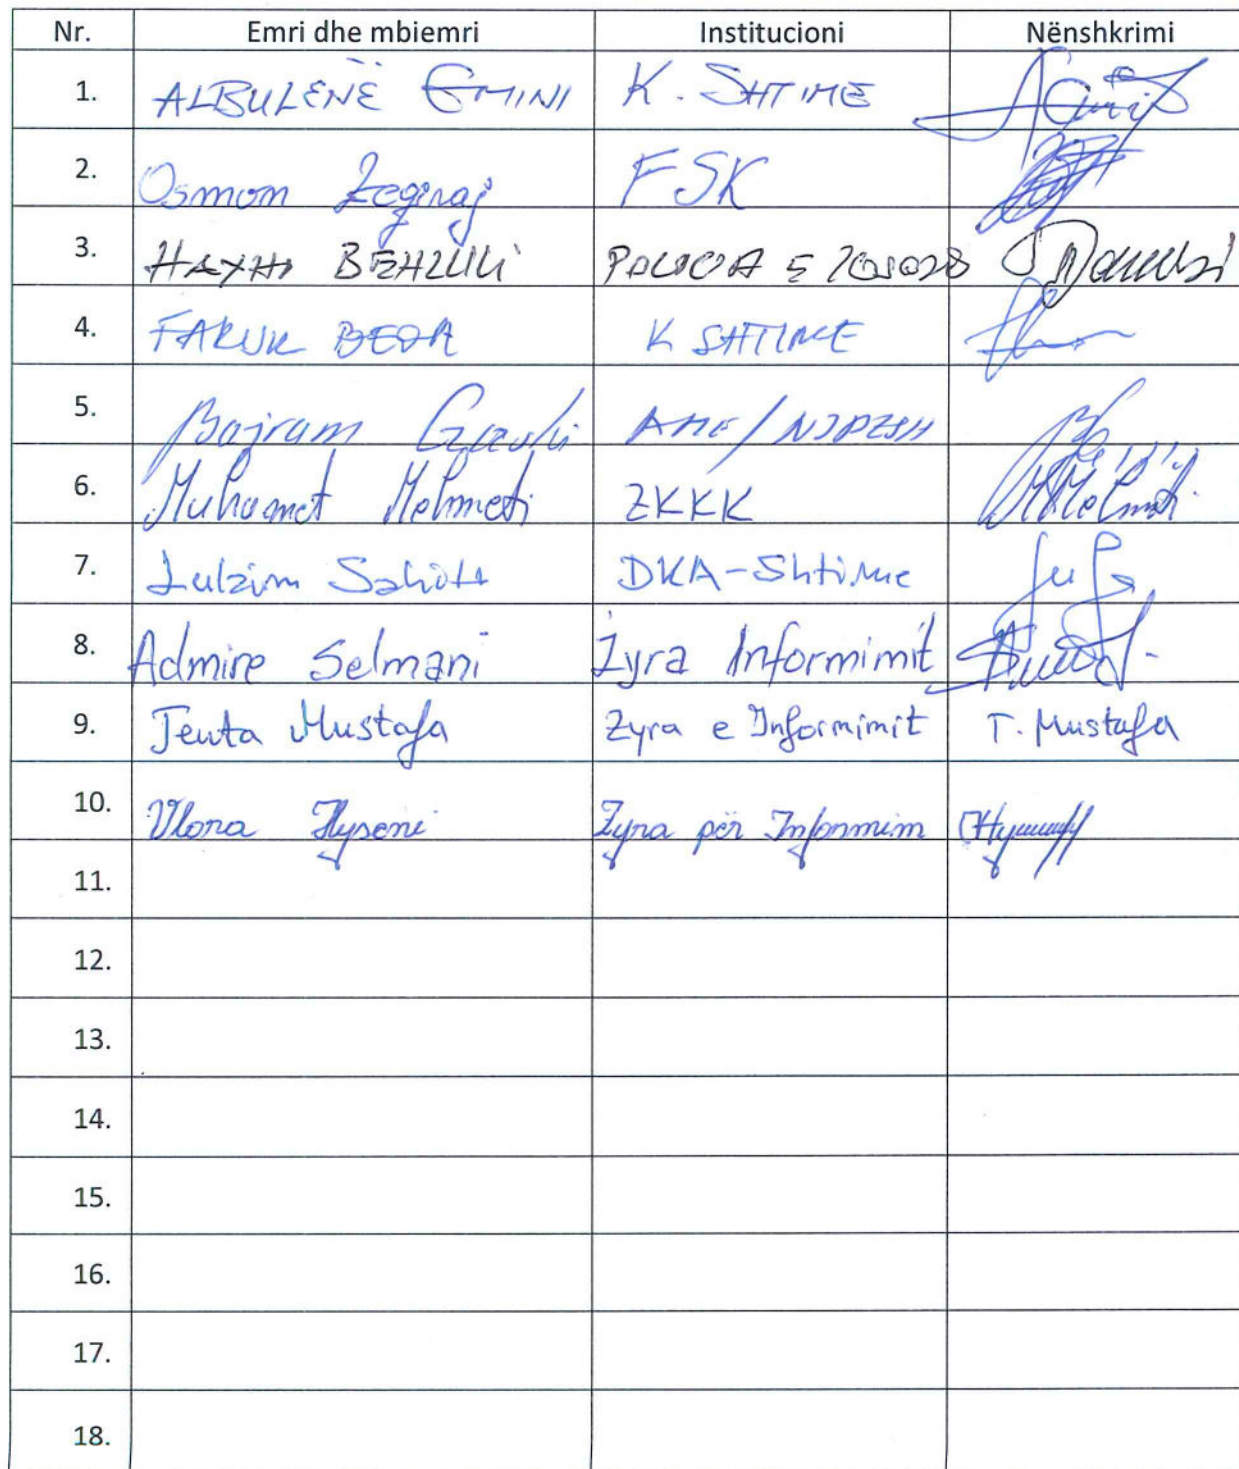 Nr. Emri dhe mbiemri Institucioni Nënshkrimi
1. ALBULENË EMINI K. SHTIME
2. Osman Zeqiraj FSK
3. BEHLULI
4. FARUK BEQA K SHTIME
5. Bajram
6. Muhamet Mehmeti ZKKK M Mehmeti
7. Lulzim DKA-Shtime
8. Admire Selmani Zyra Informimit
9. Teuta Mustafa Zyra e Informimit T. Mustafa
10. Vlora Hyseni Zyra për Informim
11.
12.
13.
14.
15.
16.
17.
18.